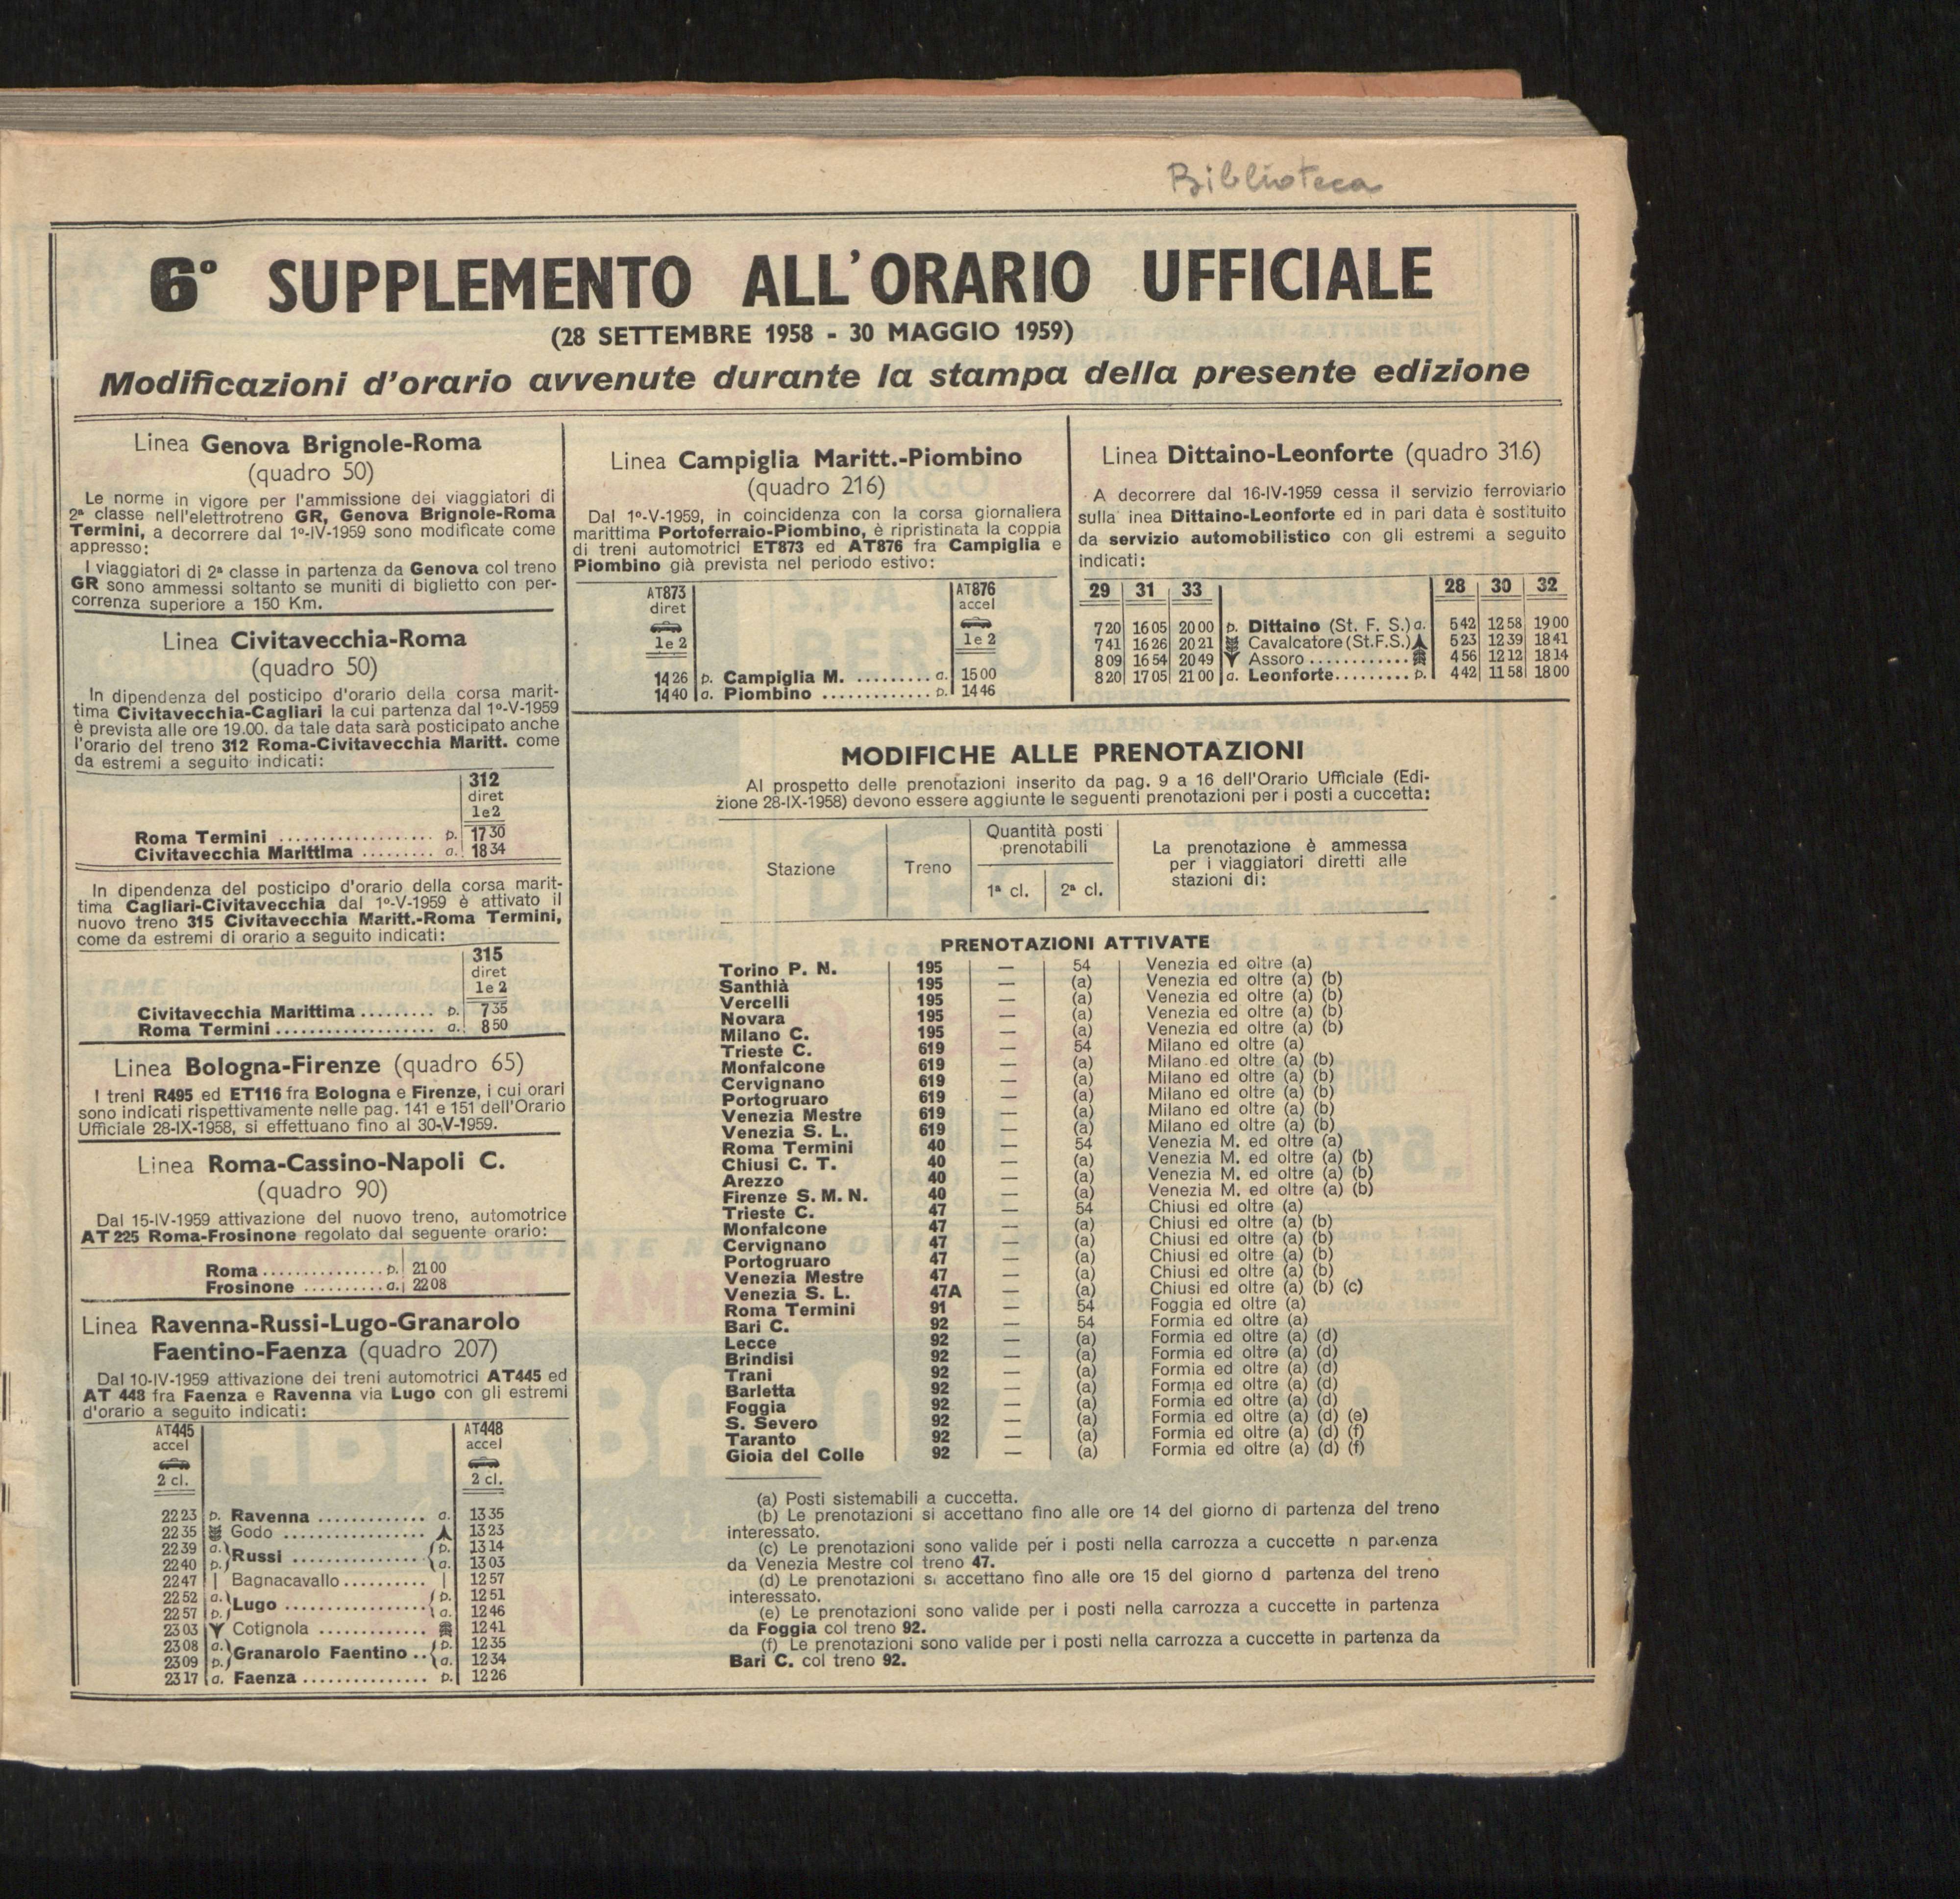 Biblioteca
6° SUPPLEMENTO ALL'ORARIO UFFICIALE
(28 SETTEMBRE 1958 - 30 MAGGIO 1959)
Modificazioni d'orario avvenute durante la stampa della presente edizione
Linea Genova Brignole-Roma
(quadro 50)
Le norme in vigore per l'ammissione dei viaggiatori di
2ª classe nell'elettrotreno GR, Genova Brignole-Roma
Termini, a decorrere dal 1º-IV-1959 sono modificate come
appresso:
I viaggiatori di 2ª classe in partenza da Genova col treno
GR sono ammessi soltanto se muniti di biglietto con per-
correnza superiore a 150 Km.
Linea Civitavecchia-Roma
(quadro 50)
In dipendenza del posticipo d'orario della corsa marit-
tima Civitavecchia-Cagliari la cui partenza dal 1º-V-1959
è prevista alle ore 19.00. da tale data sarà posticipato anche
l'orario del treno 312 Roma-Civitavecchia Maritt. come
da estremi a seguito indicati:
312
diret
1e2
Roma Termini .................. p. 17 30
Civitavecchia Marittima ......... a. 18 34
In dipendenza del posticipo d'orario della corsa marit-
tima Cagliari-Civitavecchia dal 1º-V-1959 è attivato il
nuovo treno 315 Civitavecchia Maritt.-Roma Termini,
come da estremi di orario a seguito indicati:
315
diret
1e2
Civitavecchia Marittima ......... p. 7 35
Roma Termini .................. a. 8 50
Linea Bologna-Firenze (quadro 65)
I treni R495 ed ET116 fra Bologna e Firenze, i cui orari
sono indicati rispettivamente nelle pag. 141 e 151 dell'Orario
Ufficiale 28-IX-1958, si effettuano fino al 30-V-1959.
Linea Roma-Cassino-Napoli C.
(quadro 90)
Dal 15-IV-1959 attivazione del nuovo treno, automotrice
AT 225 Roma-Frosinone regolato dal seguente orario:
Roma ............... p. 21 00
Frosinone .......... a. 22 08
Linea Ravenna-Russi-Lugo-Granarolo
Faentino-Faenza (quadro 207)
Dal 10-IV-1959 attivazione dei treni automotrici AT445 ed
AT 448 fra Faenza e Ravenna via Lugo con gli estremi
d'orario a seguito indicati:
AT445 AT448
accel accel
2 cl. 2 cl.
22 23 p. Ravenna ............. a. 13 35
22 35 Godo ................. 13 23
22 39 a. Russi ............... p. 13 14
22 40 p. a. 13 03
22 47 | Bagnacavallo .......... | 12 57
22 52 a. Lugo ................. p. 12 51
22 57 p. a. 12 46
23 03 Cotignola ............. 12 41
23 08 a. Granarolo Faentino .. p. 12 35
23 09 p. a. 12 34
23 17 a. Faenza ............... p. 12 26
Linea Campiglia Maritt.-Piombino
(quadro 216)
Dal 1º-V-1959, in coincidenza con la corsa giornaliera
marittima Portoferraio-Piombino, è ripristinata la coppia
di treni automotrici ET873 ed AT876 fra Campiglia e
Piombino già prevista nel periodo estivo:
AT873 AT876
diret accel
1e2 1e2
14 26 p. Campiglia M. ......... a. 15 00
14 40 a. Piombino ............. p. 14 46
Linea Dittaino-Leonforte (quadro 316)
A decorrere dal 16-IV-1959 cessa il servizio ferroviario
sulla inea Dittaino-Leonforte ed in pari data è sostituito
da servizio automobilistico con gli estremi a seguito
indicati:
29 31 33 28 30 32
7 20 16 05 20 00 p. Dittaino (St. F. S.) a. 5 42 12 58 19 00
7 41 16 26 20 21 Cavalcatore (St.F.S.) 5 23 12 39 18 41
8 09 16 54 20 49 Assoro ............ 4 56 12 12 18 14
8 20 17 05 21 00 a. Leonforte ......... p. 4 42 11 58 18 00
MODIFICHE ALLE PRENOTAZIONI
Al prospetto delle prenotazioni inserito da pag. 9 a 16 dell'Orario Ufficiale (Edi-
zione 28-IX-1958) devono essere aggiunte le seguenti prenotazioni per i posti a cuccetta:
Stazione Treno Quantità posti prenotabili 1ª cl. 2ª cl. La prenotazione è ammessa per i viaggiatori diretti alle stazioni di:
PRENOTAZIONI ATTIVATE
Torino P. N. 195 — 54 Venezia ed oltre (a)
Santhià 195 — (a) Venezia ed oltre (a) (b)
Vercelli 195 — (a) Venezia ed oltre (a) (b)
Novara 195 — (a) Venezia ed oltre (a) (b)
Milano C. 195 — (a) Venezia ed oltre (a) (b)
Trieste C. 619 — 54 Milano ed oltre (a)
Monfalcone 619 — (a) Milano ed oltre (a) (b)
Cervignano 619 — (a) Milano ed oltre (a) (b)
Portogruaro 619 — (a) Milano ed oltre (a) (b)
Venezia Mestre 619 — (a) Milano ed oltre (a) (b)
Venezia S. L. 619 — (a) Milano ed oltre (a) (b)
Roma Termini 40 — 54 Venezia M. ed oltre (a)
Chiusi C. T. 40 — (a) Venezia M. ed oltre (a) (b)
Arezzo 40 — (a) Venezia M. ed oltre (a) (b)
Firenze S. M. N. 40 — (a) Venezia M. ed oltre (a) (b)
Trieste C. 47 — 54 Chiusi ed oltre (a)
Monfalcone 47 — (a) Chiusi ed oltre (a) (b)
Cervignano 47 — (a) Chiusi ed oltre (a) (b)
Portogruaro 47 — (a) Chiusi ed oltre (a) (b)
Venezia Mestre 47 — (a) Chiusi ed oltre (a) (b)
Venezia S. L. 47A — (a) Chiusi ed oltre (a) (b) (c)
Roma Termini 91 — 54 Foggia ed oltre (a)
Bari C. 92 — 54 Formia ed oltre (a)
Lecce 92 — (a) Formia ed oltre (a) (d)
Brindisi 92 — (a) Formia ed oltre (a) (d)
Trani 92 — (a) Formia ed oltre (a) (d)
Barletta 92 — (a) Formia ed oltre (a) (d)
Foggia 92 — (a) Formia ed oltre (a) (d)
S. Severo 92 — (a) Formia ed oltre (a) (d) (e)
Taranto 92 — (a) Formia ed oltre (a) (d) (f)
Gioia del Colle 92 — (a) Formia ed oltre (a) (d) (f)
(a) Posti sistemabili a cuccetta.
(b) Le prenotazioni si accettano fino alle ore 14 del giorno di partenza del treno
interessato.
(c) Le prenotazioni sono valide per i posti nella carrozza a cuccette n par enza
da Venezia Mestre col treno 47.
(d) Le prenotazioni si accettano fino alle ore 15 del giorno d partenza del treno
interessato.
(e) Le prenotazioni sono valide per i posti nella carrozza a cuccette in partenza
da Foggia col treno 92.
(f) Le prenotazioni sono valide per i posti nella carrozza a cuccette in partenza da
Bari C. col treno 92.